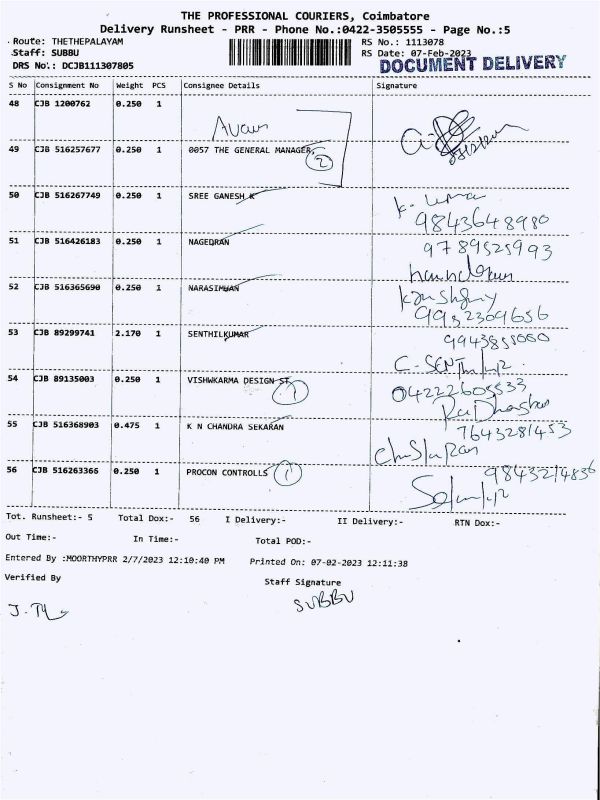 THE PROFESSIONAL COURIERS, Coimbatore
Delivery Runsheet - PRR - Phone No.:0422-3505555 - Page No.:5
Route: THETHEPALAYAM RS No.: 1113078
Staff: SUBBU RS Date: 07-Feb-2023
DRS No.: DCJB111307805 DOCUMENT DELIVERY
S No Consignment No Weight PCS Consignee Details Signature
48 CJB 1200762 0.250 1
49 CJB 516257677 0.250 1 0057 THE GENERAL MANAGER, 2
50 CJB 516267749 0.250 1 SREE GANESH K
9843648980
51 CJB 516426183 0.250 1 NAGEDRAN 9789525993
52 CJB 516365690 0.250 1 NARASIMHAN
9952309656
53 CJB 89299741 2.170 1 SENTHILKUMAR 9943855060
54 CJB 89135003 0.250 1 VISHWKARMA DESIGN ST 1 04222605533
55 CJB 516368903 0.475 1 K N CHANDRA SEKARAN 7643281453
56 CJB 516263366 0.250 1 PROCON CONTROLLS 1 9843214836
Tot. Runsheet:- 5 Total Dox:- 56 I Delivery:- II Delivery:- RTN Dox:-
Out Time:- In Time:- Total POD:-
Entered By :MOORTHYPRR 2/7/2023 12:10:40 PM Printed On: 07-02-2023 12:11:38
Verified By Staff Signature
SUBBU